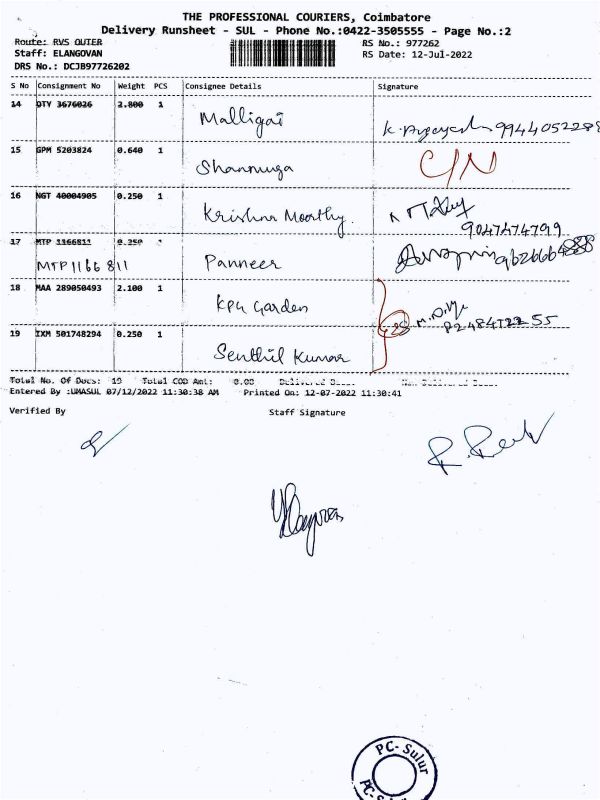 THE PROFESSIONAL COURIERS, Coimbatore
Delivery Runsheet - SUL - Phone No.:0422-3505555 - Page No.:2
Route: RVS OUTER
RS No.: 977262
Staff: ELANGOVAN
RS Date: 12-Jul-2022
DRS No.: DCJB97726202
S No Consignment No Weight PCS Consignee Details Signature
14 DTY 3676026 2.800 1 Malligai 9944052288
15 GPM 5203824 0.640 1 Shanmuga C/N
16 NGT 40004905 0.250 1 Krishna Moorthy. 9047474799
17 MTP 1166811 0.250 1
MTP1166811 Panneer
18 MAA 289050493 2.100 1 KPG Garden
19 IXM 501748294 0.250 1 Senthil Kumar
Total No. Of Docs: 19 Total COD Amt: 0.00
Entered By :UMASUL 07/12/2022 11:30:38 AM Printed On: 12-07-2022 11:30:41
Verified By Staff Signature
PC- Sulur